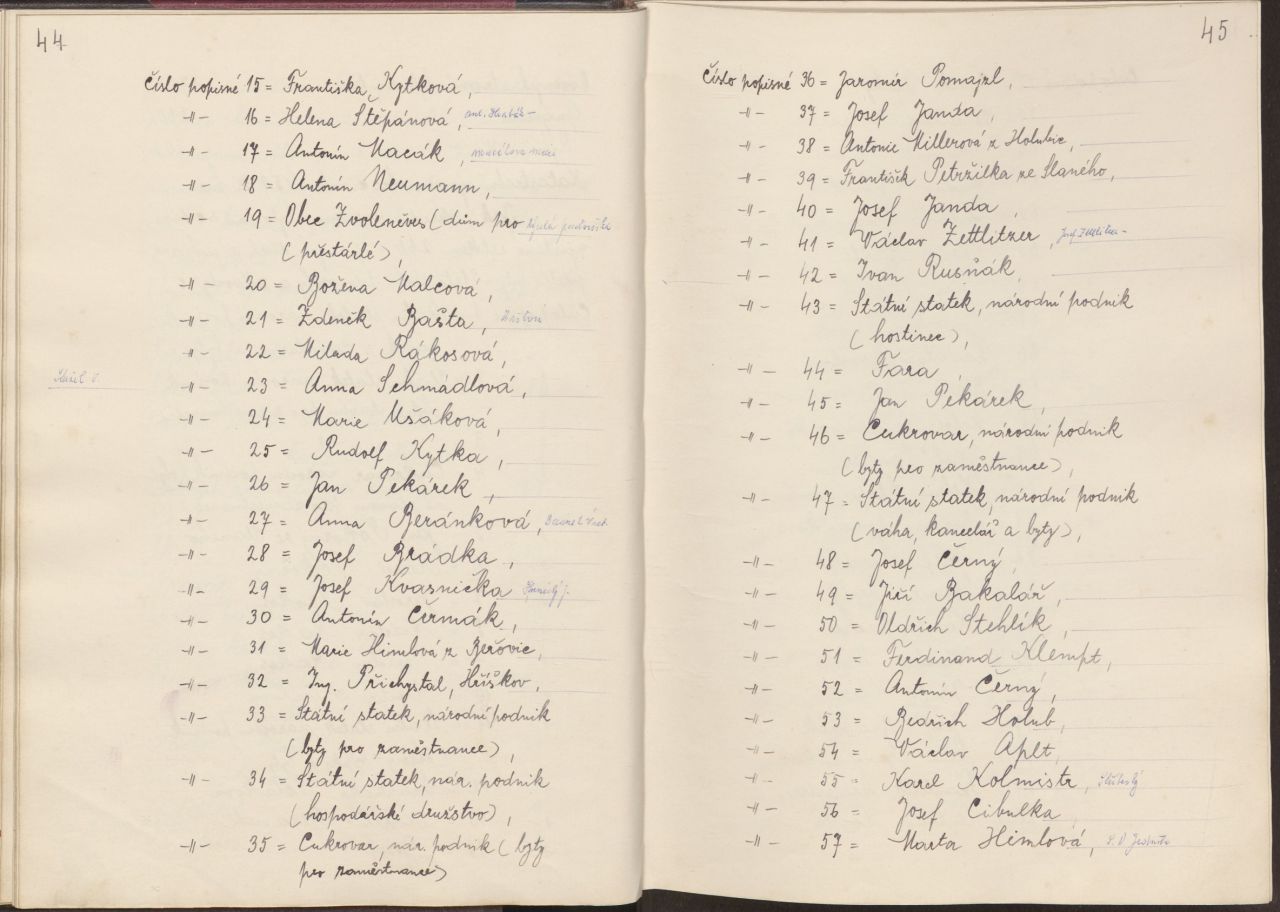 44
Číslo popisné 15 = Františka Kytková,
-"- 16 = Helena Štěpánová,
-"- 17 = Antonín Macák,
-"- 18 = Antonín Neumann,
-"- 19 = Obec Zvoleněves (dům pro
(přestárlé),
-"- 20 = Božena Malcová,
-"- 21 = Zdeněk Bašta,
-"- 22 = Milada Rákosová,
-"- 23 = Anna Schmádlová,
-"- 24 = Marie Ušáková,
-"- 25 = Rudolf Kytka,
-"- 26 = Jan Pekárek,
-"- 27 = Anna Beránková,
-"- 28 = Josef Brádka,
-"- 29 = Josef Kvasnička
-"- 30 = Antonín Čermák,
-"- 31 = Marie Himlová z Beřovic,
-"- 32 = Ing. Přichystal, Hříškov,
-"- 33 = Státní statek, národní podnik
(byty pro zaměstnance),
-"- 34 = Státní statek, nár. podnik
(hospodářské družstvo),
-"- 35 = Cukrovar, nár. podnik (byty
pro zaměstnance)
45
Číslo popisné 36 = Jaromír Pomajzl,
-"- 37 = Josef Janda,
-"- 38 = Antonie Millerová z Holubic,
-"- 39 = František Petržilka ze Slaného,
-"- 40 = Josef Janda,
-"- 41 = Václav Zettlitzer,
-"- 42 = Ivan Rusňák,
-"- 43 = Státní statek, národní podnik
(hostinec),
-"- 44 = Fara,
-"- 45 = Jan Pekárek,
-"- 46 = Cukrovar, národní podnik
(byty pro zaměstnance),
-"- 47 = Státní statek, národní podnik
(váha, kancelář a byty),
-"- 48 = Josef Černý,
-"- 49 = Jiří Bakalář,
-"- 50 = Oldřich Stehlík,
-"- 51 = Ferdinand Klempt,
-"- 52 = Antonín Černý,
-"- 53 = Bedřich Holub,
-"- 54 = Václav Aplt,
-"- 55 = Karel Kolmistr,
-"- 56 = Josef Cibulka,
-"- 57 = Marta Himlová,